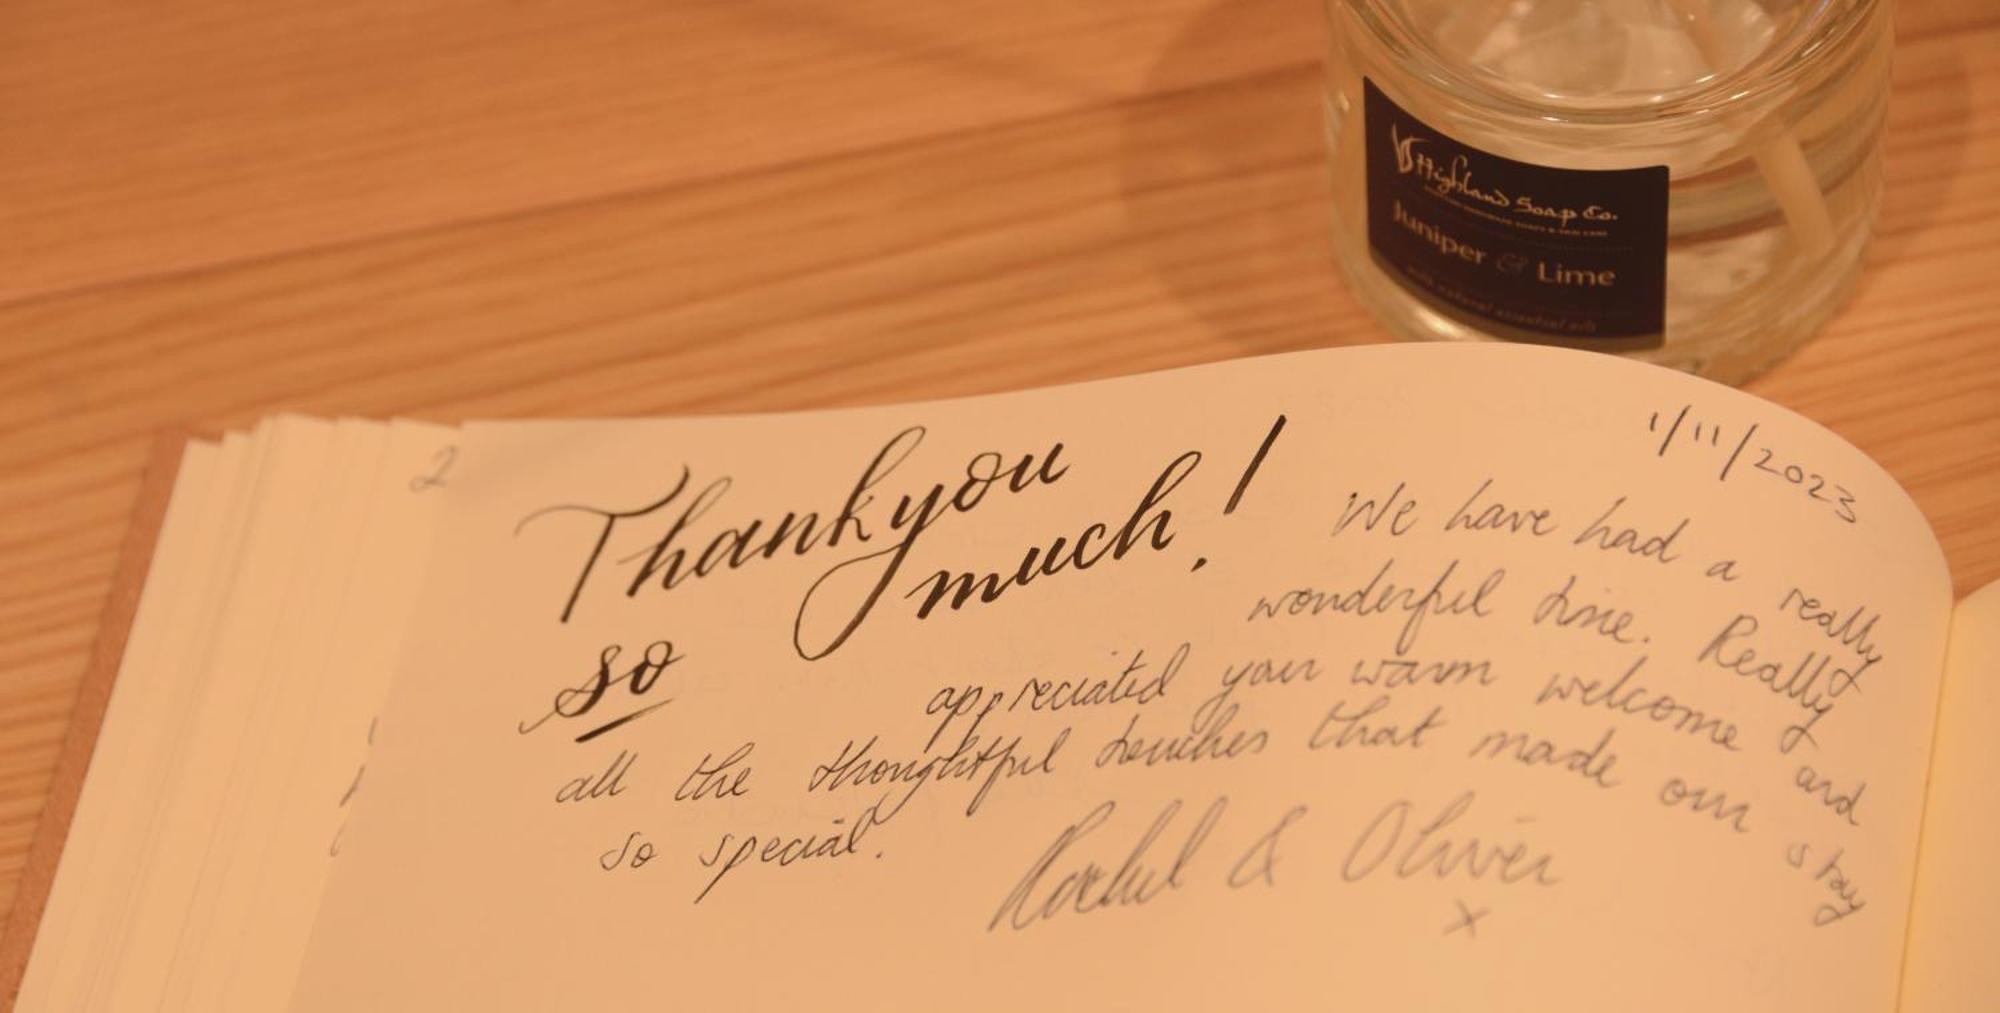 Highland Soap Co.
Juniper & Lime
with natural essential oils
2
1/11/2023
Thankyou
so much!
We have had a really
wonderful time. Really
appreciated your warm welcome and
all the thoughtful touches that made our stay
so special.
Rachel & Oliver
x